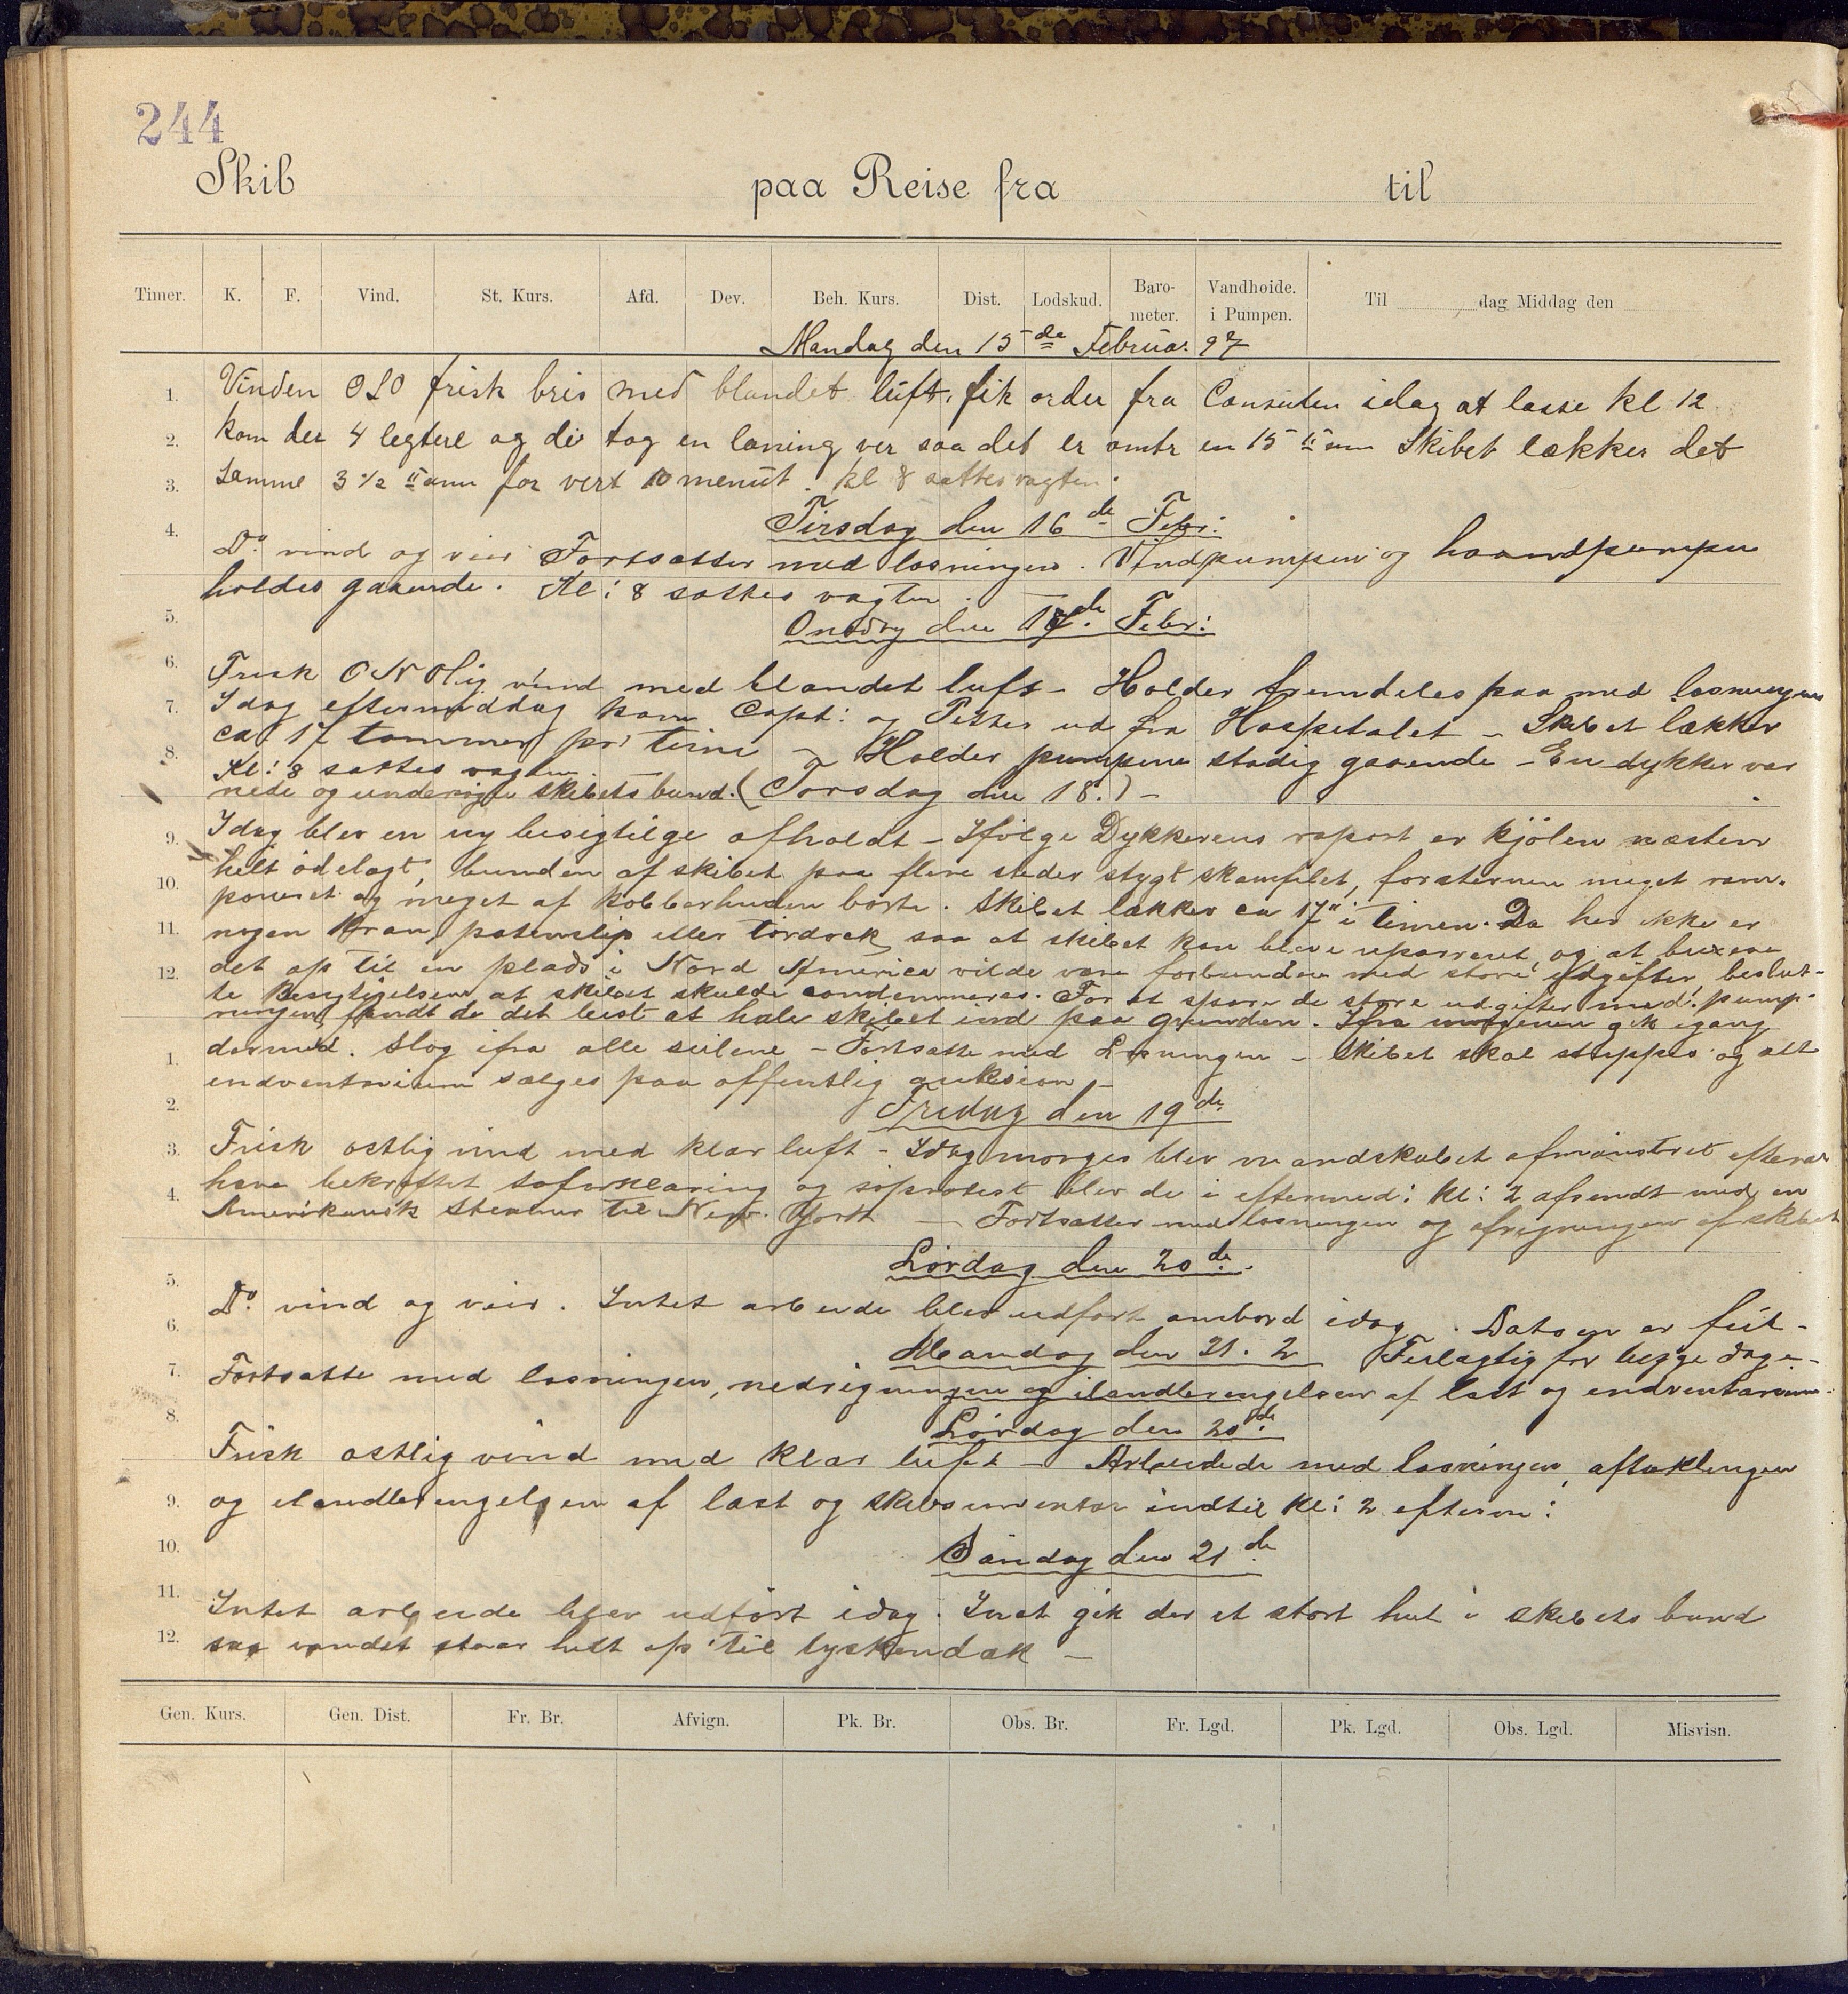 244
Skib paa Reise fra til
Timer. K. F. Vind. St. Kurs. Afd. Dev. Beh. Kurs. Dist. Lodskud. Baro-meter. Vandhøide. i Pumpen. Til dag Middag den
Mandag den 15de Februar 97
Vinden OSO frisk bris med blandet luft, fik order fra Consulen idag at losse kl 12
kom der 4 legtere og de tog en laning ver saa det er omtr en 15 Skibet lækker det
samme 3 1/2 for vert 10 menut. kl 8 sattes vagten.
Tirsdag den 16de Febr:
Do vind og veir Fortsatter med losningen. Vindpumpen og haandpumpen
holdes gaaende. Kl: 8 sattes vagten.
Onsdag den 17de Febr:
Frisk ONOlig vind med blandet luft - Holder fremdeles paa med losningen
Idag eftermiddag kom Capt: og Petter ud fra Hospitalet - Skibet lækker
ca 17 tommer pr time - Holder pumpene stadig gaaende - En dykker var
Kl: 8 sattes vagten.
nede og undersøgte skibets bund. (Torsdag den 18.) -
Idag blev en ny besigtilge afholdt - Ifølge Dykkerens raport er kjölen næsten
helt ödelagt, bunden af skibet paa flere steder stygt skamfilet, forstevnen meget ram-
poneret og meget af kobberhuden borte. Skibet lækker ca 17" i timen. Da her ikke er
nogen Kran, patenslip eller tördock saa at skibet kan blive reparreret og at buxere
det op til en plads i Nord America vilde være forbunden med store udgifter, beslut-
te Besigtigelsen at skibet skulde condemneres. For at spare de store udgifter med pump-
ningen fandt de det best at hale skibet ind paa grunden. Ifra morgenen gik igang
dermed. Slog ifra alle seilene - Fortsatte med Losningen - Skibet skal strippes og alt
endventarium sælges paa offentlig auksion -
Fredag den 19de
Frisk ostlig vind med klar luft - Idag morges blev mandskabet afmönstret efter at
have bekræftet soforklaring og soprotest blev de i eftermed: kl: 2 afsendt med en
Amerikansk Steamer til New York - Fortsatter med losningen og afrigningen af skibet
Lørdag den 20de.
Do vind og veir. Intet arbeide blev udfort ombord idag. Datoen er feil-
Mandag den 21. 2 Feilagtig for begge dage -
Fortsatte med losningen, nedrigningen og ilandbringelsen af last og endventarium.
Lørdag den 20de.
Frisk ostlig vind med klar luft - Arbeidede med losningen, aftaklingen
og ilandbringelsen af last og skibsinventar indtil kl: 2 efterm:
Søndag den 21de
Intet arbeide blev udført idag. Inat gik der et stort hul i skibets bund
saa vandet staar helt op til tyskendæk -
1. 2. 3. 4. 5. 6. 7. 8. 9. 10. 11. 12.
1. 2. 3. 4. 5. 6. 7. 8. 9. 10. 11. 12.
Gen. Kurs. Gen. Dist. Fr. Br. Afvign. Pk. Br. Obs. Br. Fr. Lgd. Pk. Lgd. Obs. Lgd. Misvisn.